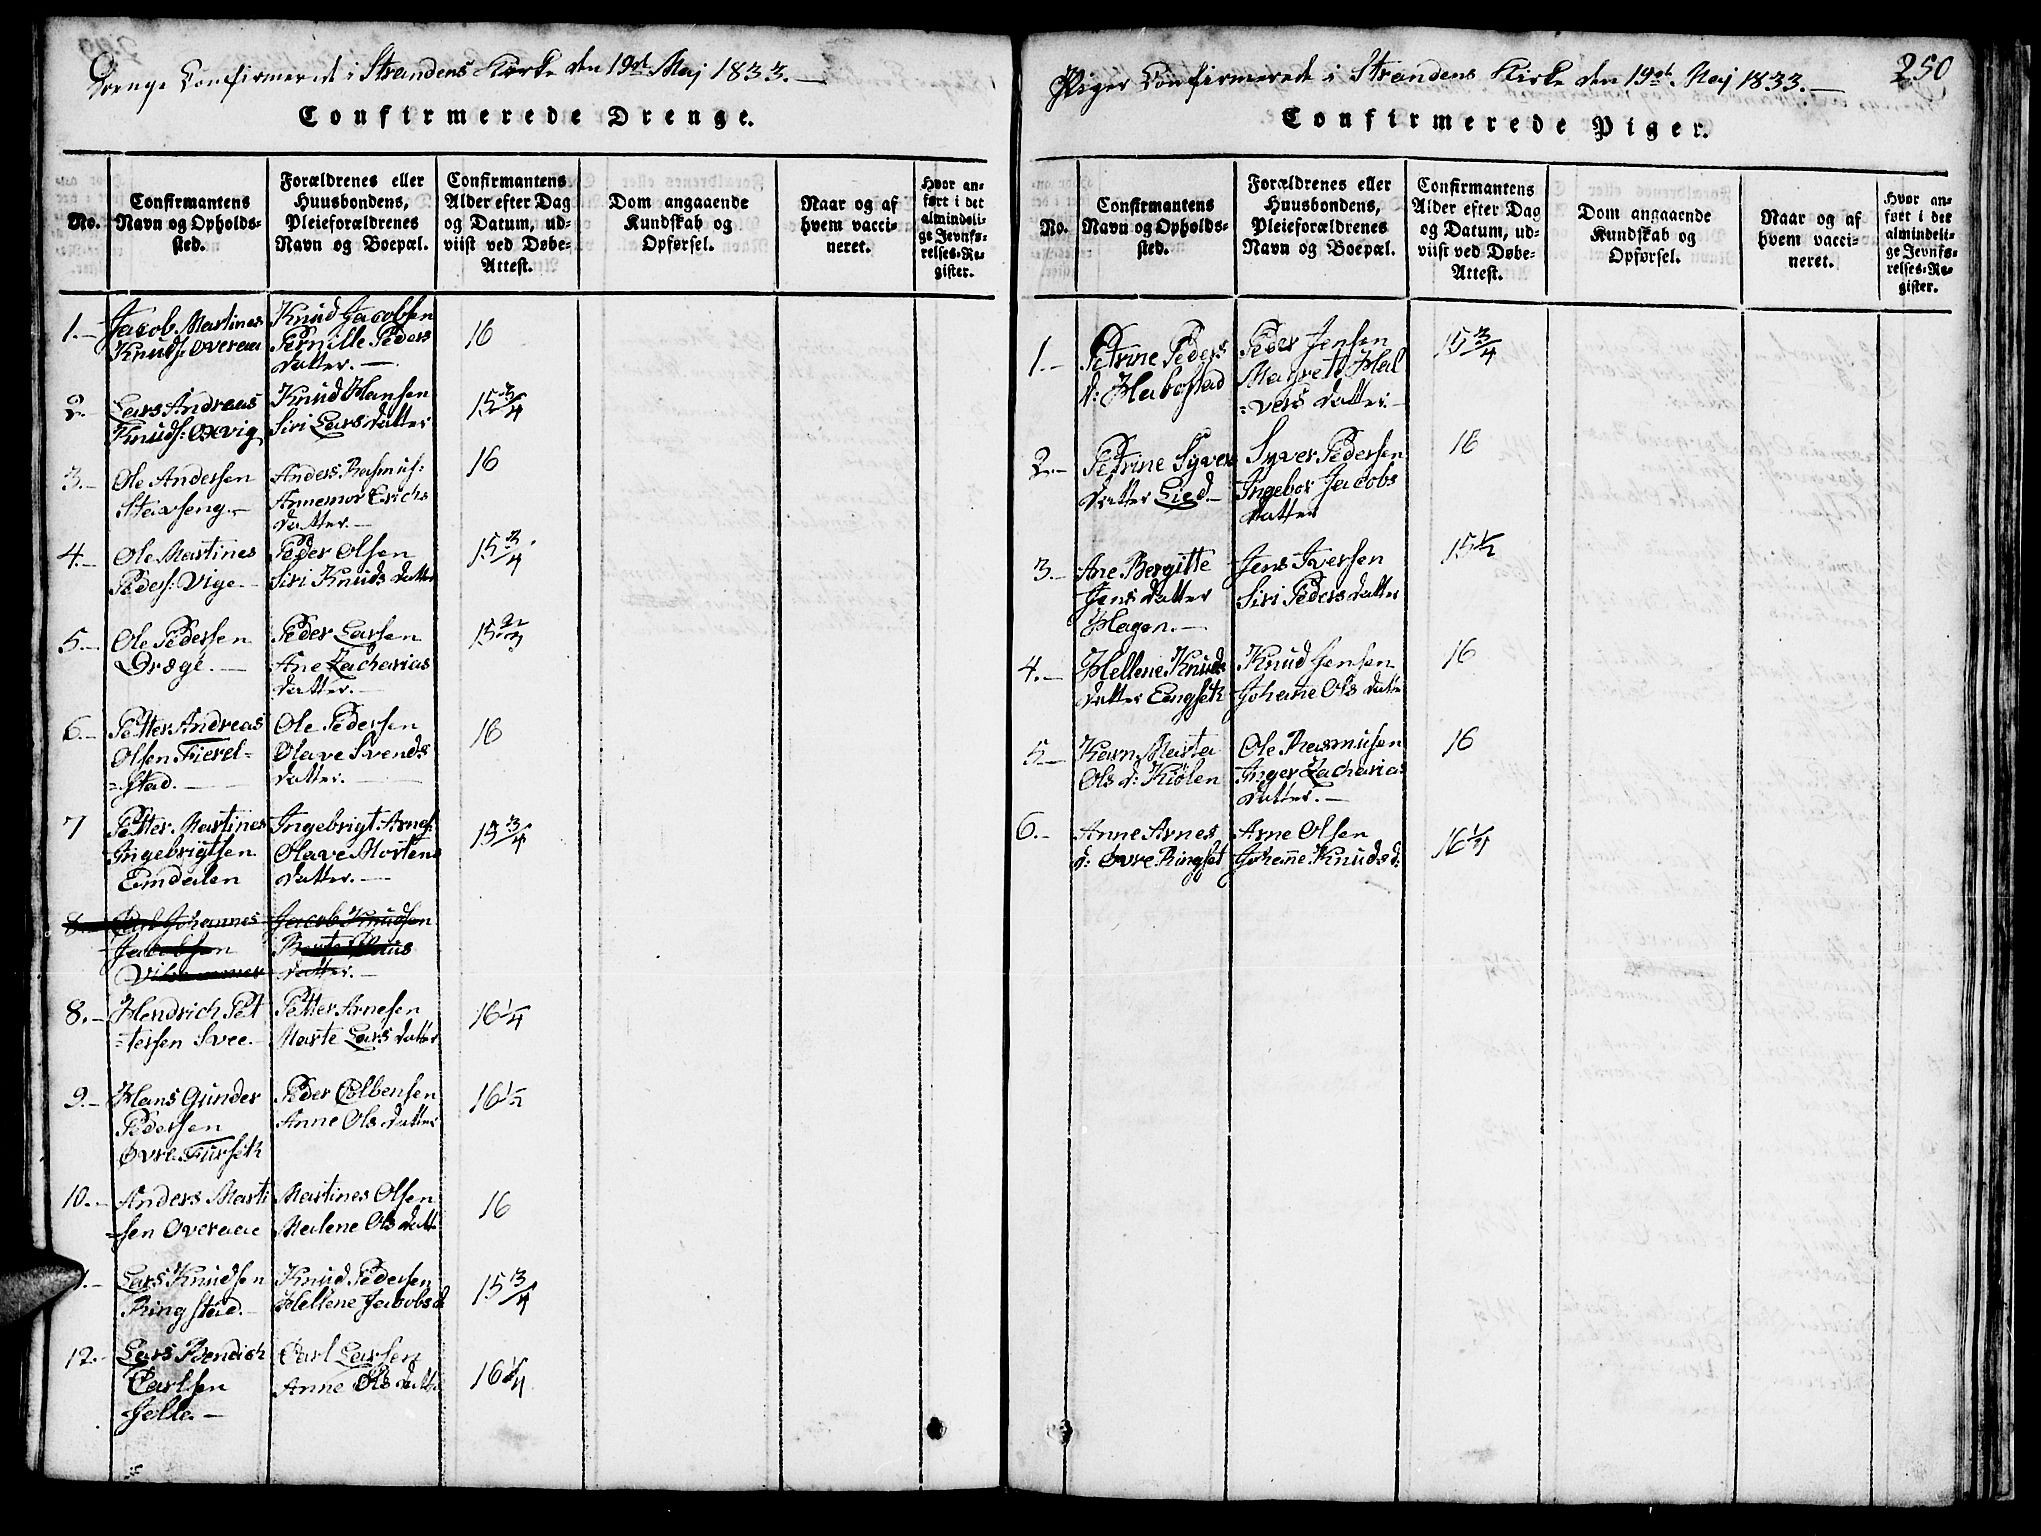 Drenge Confirmerede i Strandens Kirke den 19de Maj 1833.
Confirmerede Drenge.
No.
Confirmantens
Navn og Opholds-
sted.
Forældrenes eller
Huusbondens,
Pleieforældrenes
Navn og Boepæl.
Confirmantens
Alder efter Dag
og Datum, ud-
viist ved Døbe-
Attest.
Dom angaaende
Kundskab og
Opførsel.
Naar og af
hvem vacci-
neret.
Hvor an-
ført i det
almindeli-
ge Jevnfø-
relses-Re-
gister.
1.- Jacob Martines Knud Jacobsen 16
Knuds: Overaae Pernille Peders
datter.-
2 Lars Andreas Knud Hansen 15 3/4
Knuds: Oxevig Siri Larsdatter
3.- Ole Andersen Anders Rasmus: 16
Stavseng.- Annemor Erichs
datter.-
4.- Ole Martines Peder Olsen 15 3/4
Peders: Vige.- Siri Knuds datter
5.- Ole Pedersen Peder Larsen 15 2/3
Dræge.- Ane Zacharias
datter.-
6.- Petter Andreas Ole Pedersen 16
Olsen Fierel- Olave Svends
=stad.- datter.-
7 Petter Martines Ingebrigt Arnes: 15 3/4
Ingebrigtsen Olave Mortens
Emdalen datter.-
8.- Carl Johannes Jacob Knudsen
Jacobsen
datter.-
8.- Hendrich Pet Petter Arnesen 16 1/4
=tersen Svee.- Marte Lars datter
9.- Hans Gunder Peder Colbensen 16 1/2
Pedersen Anne Ols datter
Øvre Furseth
10.- Anders Marti Martines Olsen 16
=sen Overaae Malene Ols datt
Lars Knudsen Knud Pedersen 15 3/4
Ringstad.- Hellene Jacobs d
12.- Lars Bendich Carl Larsen 16 1/4
Carlsen Anne Ols datte
Jelle.-
250
Piger Confirmerede i Strandens Kirke den 19de Maj 1833.-
Confirmerede Piger.
No.
Confirmantens
Navn og Opholds-
sted.
Forældrenes eller
Huusbondens,
Pleieforældrenes
Navn og Boepæl.
Confirmantens
Alder efter Dag
og Datum, ud-
viist ved Døbe-
Attest.
Dom angaaende
Kundskab og
Opførsel.
Naar og af
hvem vacci-
neret.
Hvor an-
ført i det
almindeli-
ge Jevnfø-
relses-Re-
gister.
1.- Petrine Peders Peder Jensen 15 3/4
d: Habostad Magrete Hal
=vers datter.-
2.- Petrine Syvers Syver Pedersen 16
datter Lied.- Ingebor Jacobs
datter
3.- Ane Bergitte Jens Iversen 15 1/2
Jens datter Siri Peders datter
Hagen.-
4.- Hellene Knuds Knud Jensen 16
datter Engseth Johane Ols datte
5.- Karn Marta Ole Rasmusen 16
Ols d: Kiølen Inger Zacharias
datter.-
6.- Anne Arnes Arne Olsen 16 1/4
d: Øvre Ringset Johanne Knuds d: